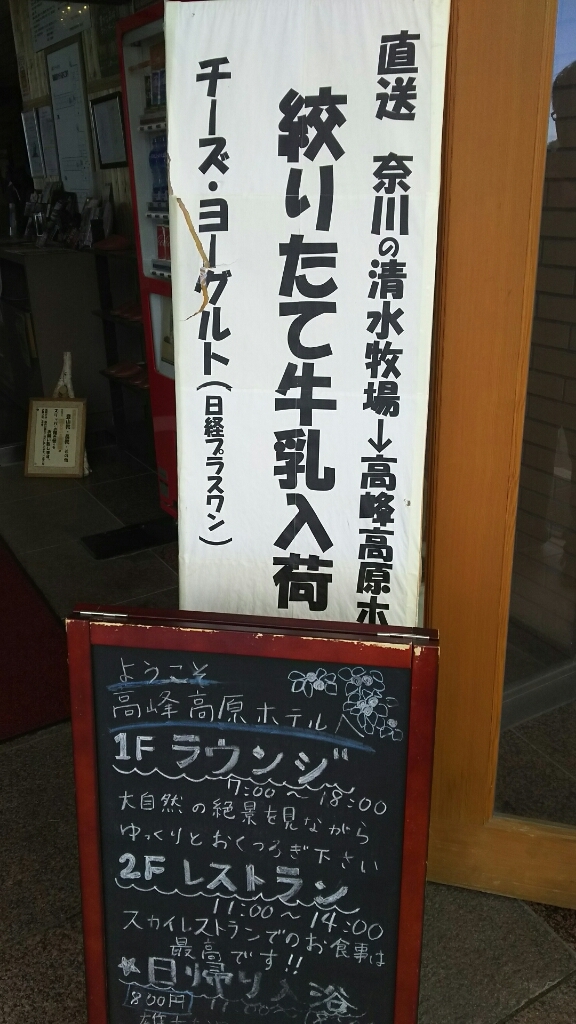 直送 奈川の清水牧場→高峰高原ホ
絞りたて牛乳入荷
チーズ・ヨーグルト(日経プラスワン)
ようこそ
高峰高原ホテルへ
1F ラウンジ
7:00～18:00
大自然の絶景を見ながら
ゆっくりとおくつろぎ下さい
2F レストラン
11:00～14:00
スカイレストランでのお食事は
最高です!!
★日帰り入浴
800円